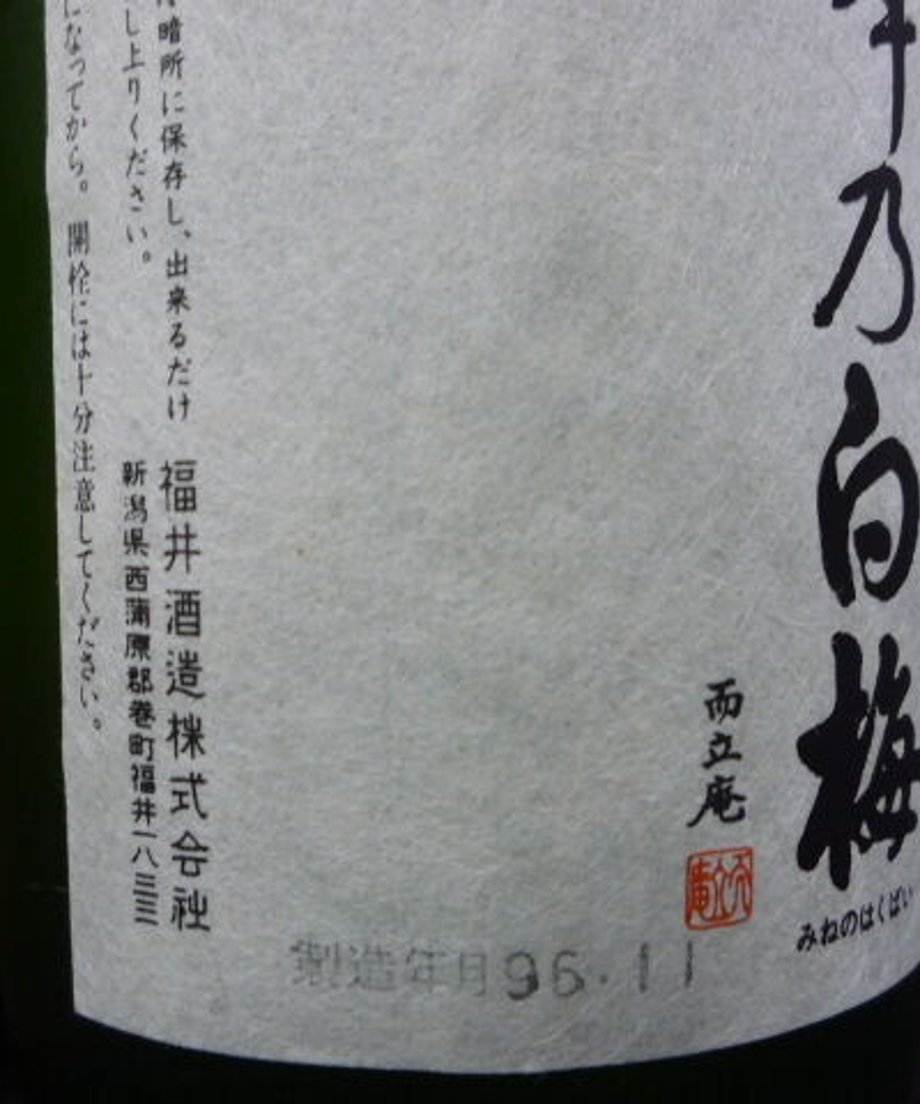 乃白梅
みねのはくばい
而立庵
製造年月96.11
暗所に保存し、出来るだけ
し上りください。
になってから。開栓には十分注意してください。
福井酒造株式会社
新潟県西蒲原郡巻町福井一八三三